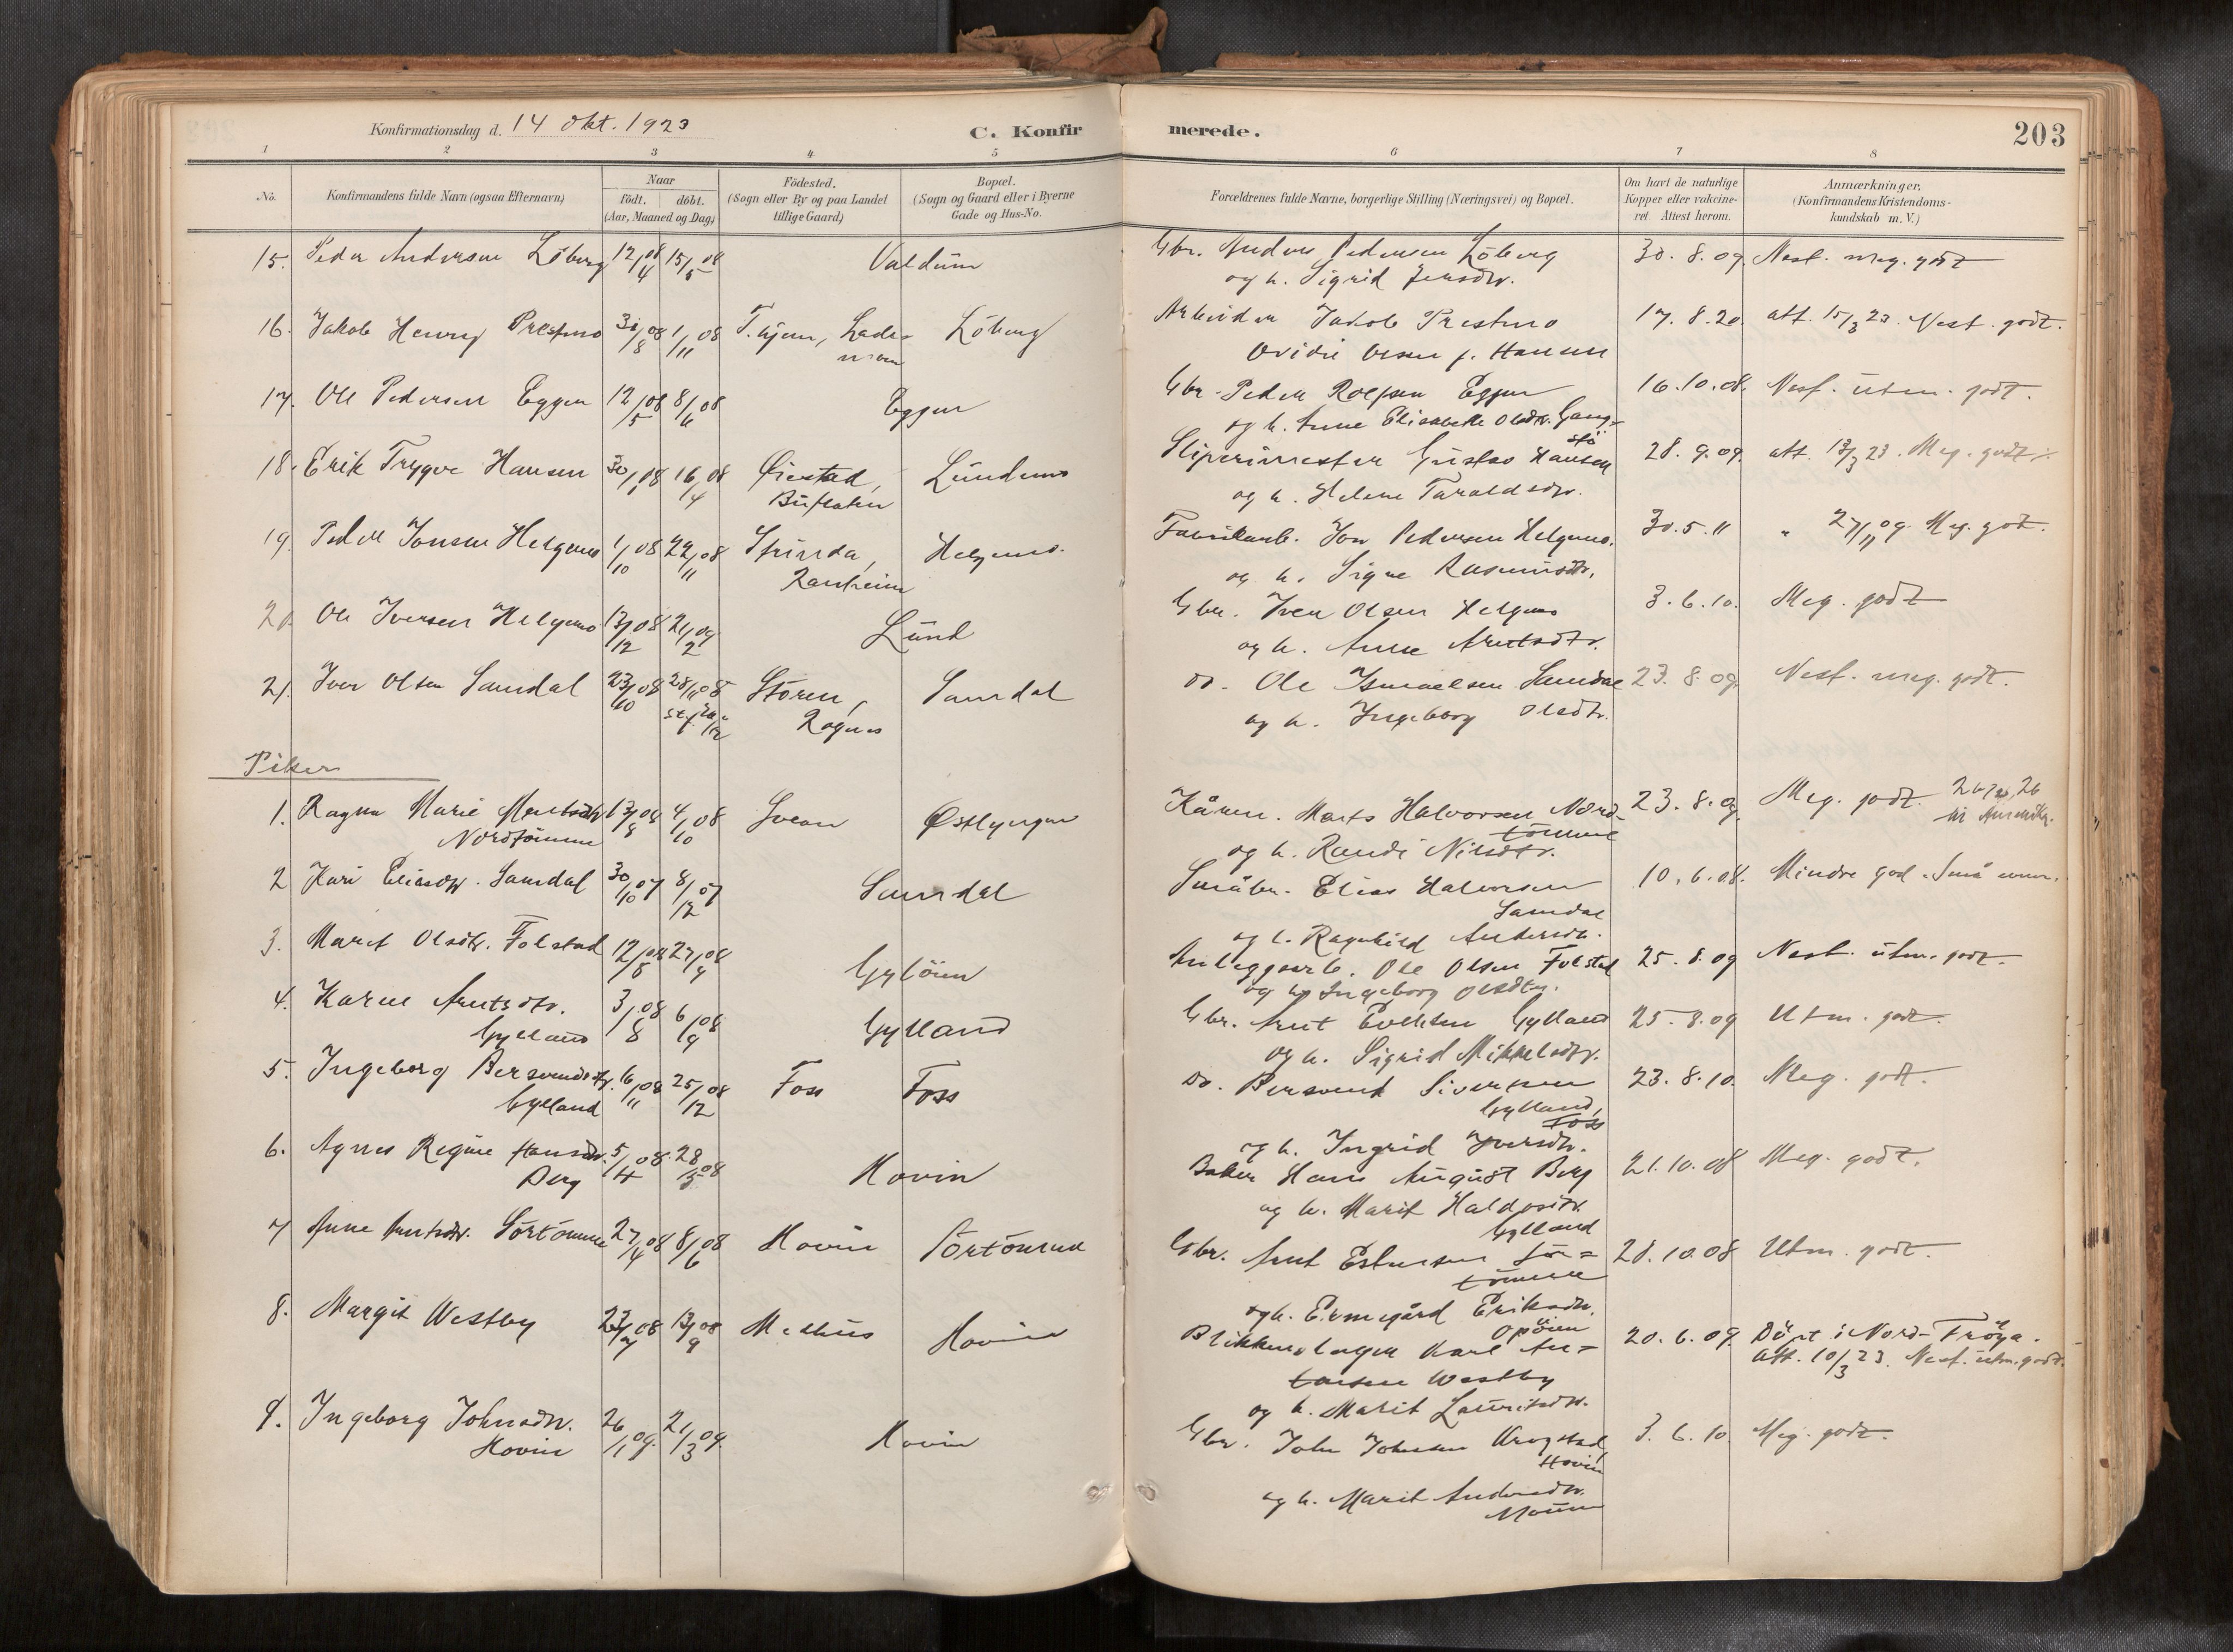 Konfirmationsdag d. 14 Okt. 1923
C. Konfirmerede.
203
1 2 3 4 5 6 7 8
No.
Konfirmandens fulde Navn (ogsaa Efternavn)
Naar
födt. döbt.
(Aar, Maaned og Dag)
Födested.
(Sogn eller By og paa Landet
tillige Gaard)
Bopæl.
(Sogn og Gaard eller i Byerne
Gade og Hus-No.
Forældrenes fulde Navne, borgerlige Stilling (Næringsvei) og Bopæl.
Om havt de naturlige
Kopper eller vakcine-
ret Attest herom.
Anmærkninger.
(Konfirmandens Kristendoms-
kundskab m. V.)
15. Peder Andersen Löberg 12/4 08 15/5 08 Valdum Gbr. Anders Pedersen Löberg 30. 8. 09. Nest. meg. godt
og h. Sigrid Jensdtr.
16. Jakob Henry Prestmo 31/8 08 1/11 08 T.hjem, Lade- Löberg Arbeider Jakob Prestmo 17. 8. 20. att. 15/3 23. Nest. godt.
moen Ovidie Olsen f. Hansen
17. Ole Pedersen Eggen 12/5 08 8/6 08 Eggen Gbr. Peder Rolfsen Eggen 16. 10. 08. Nest. utm. godt.
og h. Anne Elisabeth Olsdtr. Gang-
stö
18. Erik Trygve Hansen 30/1 08 16/4 08 Öiestad, Lundemo Sliperimester Gustav Hansen 28. 9. 09. att. 13/3 23. Meg. godt
og h. Helene Taraldsdtr.
19. Peder Jonsen Helgemo 1/10 08 22/11 08 Strinda, Helgemo. Fabrikarb. Jon Pedersen Helgemo. 30. 5. 11 " 27/11 09. Meg. godt.
Ranheim og h. Signe Rasmusdtr.
20 Ole Iversen Helgemo 13/12 08 21/2 09 Lund Gbr. Iver Olsen Helgemo 3. 6. 10. Meg. godt
og h. Anne Arntsdtr.
21. Iver Olsen Samdal 23/10 08 28/11 08 Stören, Samdal do. Ole Ismaelsen Samdal 23. 8. 09. Nest. meg. godt.
Rognes og h. Ingeborg Olsdtr.
Piker
1. Ragna Marie Martsdtr 13/8 08 4/10 08 Svean Östlyngen Kårm. Marts Halvorsen Nord- 23. 8. 09. Meg. godt.
Nordtömme tömme til Amerika.
og h. Randi Nilsdtr.
2 Kari Eliasdtr. Samdal 30/10 07 8/12 07 Samdal Småbr. Elias Halvorsen 10. 6. 08. Mindre god. Små evner.
Samdal
og h. Ragnhild Andersdtr.
3. Marit Olsdtr. Folstad 12/8 08 27/9 08 Gylöien Anleggsarb. Ole Olsen Folstad 25. 8. 09 Nest. utm. godt.
og h. Ingeborg Olsdtr.
4. Karen Arntsdtr. 3/8 08 6/9 08 Gylland Gbr. Arnt Evensen Gylland 25. 8. 09 Utm. godt.
Gylland og h. Sigrid Mikkelsdtr.
5. Ingeborg Bersvendsdtr. 6/11 08 25/12 08 Foss Foss do. Bersvend Sivertsen 23. 8. 10. Meg. godt.
Gylland Gylland,
Foss
og h. Ingrid Iversdtr.
6. Agnes Regine Hansdtr. 5/4 08 28/5 08 Hovin Baker Hans August Berg 21. 10. 08 Meg. godt.
Berg og h. Marit Haldosdtr.
Gylland
7 Anne Arntsdtr. Sörtömme 27/4 08 8/6 08 Hovin Sörtömme Gbr. Arnt Estensen Sör= 28. 10. 08 Utm. godt.
tömme
og h. Ermegård Eriksdtr.
Opöien
8. Margit Westby 23/7 08 13/9 08 Melhus Hovin Blikkenslager Karl An= 20. 6. 09. Döpt i Nord-Fröya.
tonsen Westby att. 10/3 23. Nest. utm. godt.
og h. Marit Lauritsdtr.
9. Ingeborg Johnsdtr. 26/1 09. 21/3 09. Hovin Gbr. John Johnsen Krogstad, 3. 6. 10. Meg. godt.
Hovin Hovin
og h. Marit Andersdtr.
Moum